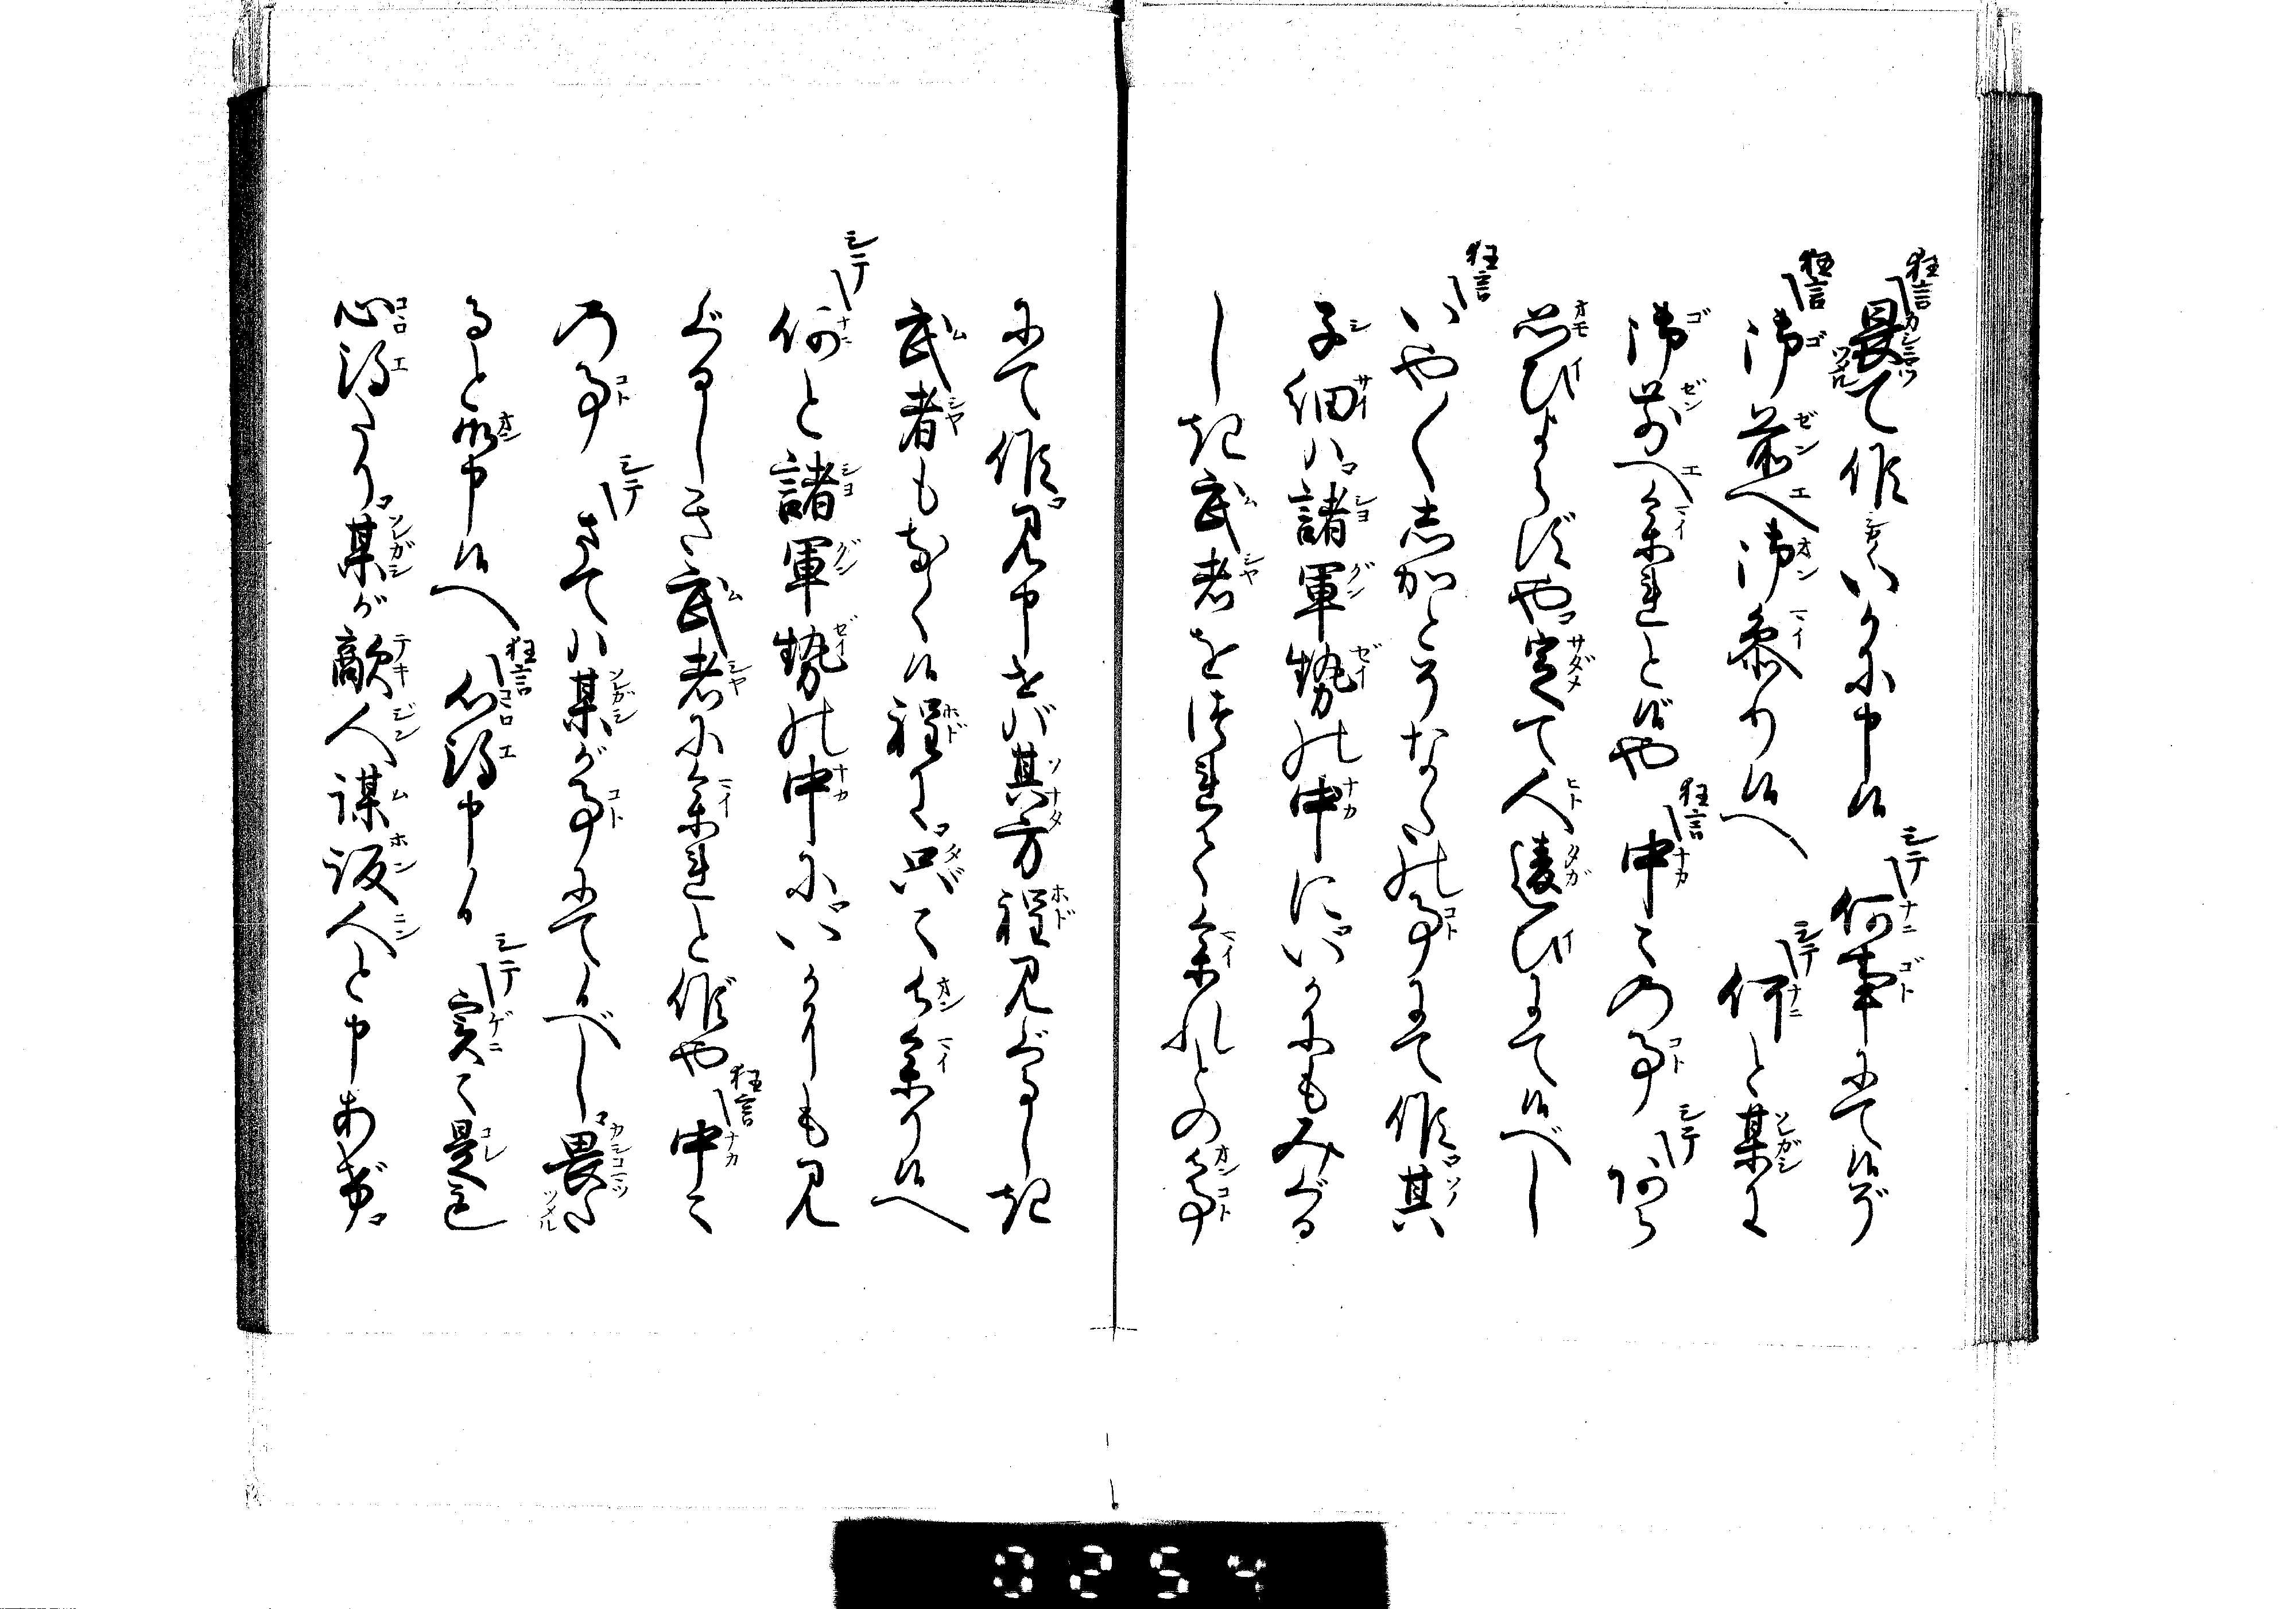 狂言 畏て候 いかに申候 シテ 何事にて候ぞ
狂言 御前へ御参り候へ シテ 何と某に
御前へ参れと候や 狂言 中々の事 シテ あら
思ひよらずや 定て人違ひにて候べし
狂言 いや〳〵しかとそなたの事にて候 其
子細ハ 諸軍勢の中に いかにもみぐる
しき武者をつれて参れとの御事
にて候 見申せバ其方程見ぐるしき
武者もなく候程に 只々御参り候へ
シテ 何と諸軍勢の中に いかにも見
ぐるしき武者に参れと候や 狂言 中々
の事 シテ さてハ某が事にて候べし 畏た
ると御申候へ 狂言 心得申候 シテ 実々是も
心得たり 某が敵人謀叛人と申あげ
0254